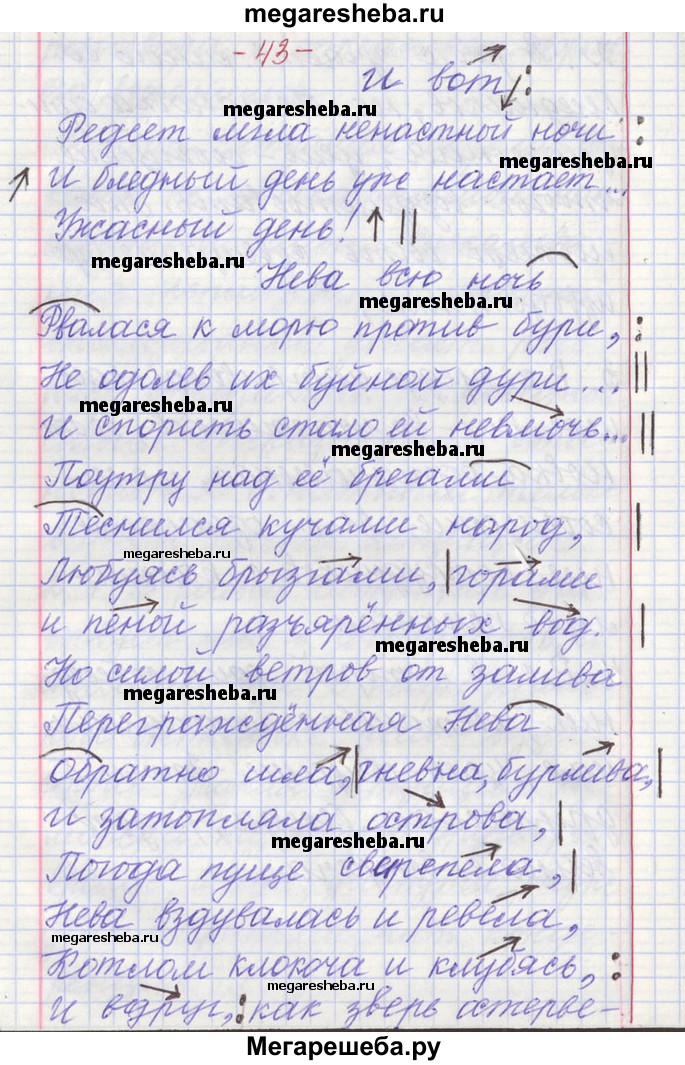 megaresheba.ru
- 43 -
И вот,
megaresheba.ru
Редеет мгла ненастной ночи
megaresheba.ru
И бледный день уж настает...
Ужасный день!
megaresheba.ru
Нева всю ночь
megaresheba.ru
Рвалася к морю против бури,
Не одолев их буйной дури...
megaresheba.ru
И спорить стало ей невмочь...
megaresheba.ru
Поутру над её брегами
Теснился кучами народ,
megaresheba.ru
Любуясь брызгами, горами
и пеной разъярённых вод.
megaresheba.ru
Но силой ветров от залива
megaresheba.ru
Переграждённая Нева
Обратно шла, гневна, бурлива,
И затопляла острова,
megaresheba.ru
Погода пуще свирепела,
Нева вздувалась и ревела,
megaresheba.ru
Котлом клокоча и клубясь,
megaresheba.ru
И вдруг, как зверь остерве-
Мегарешеба.ру